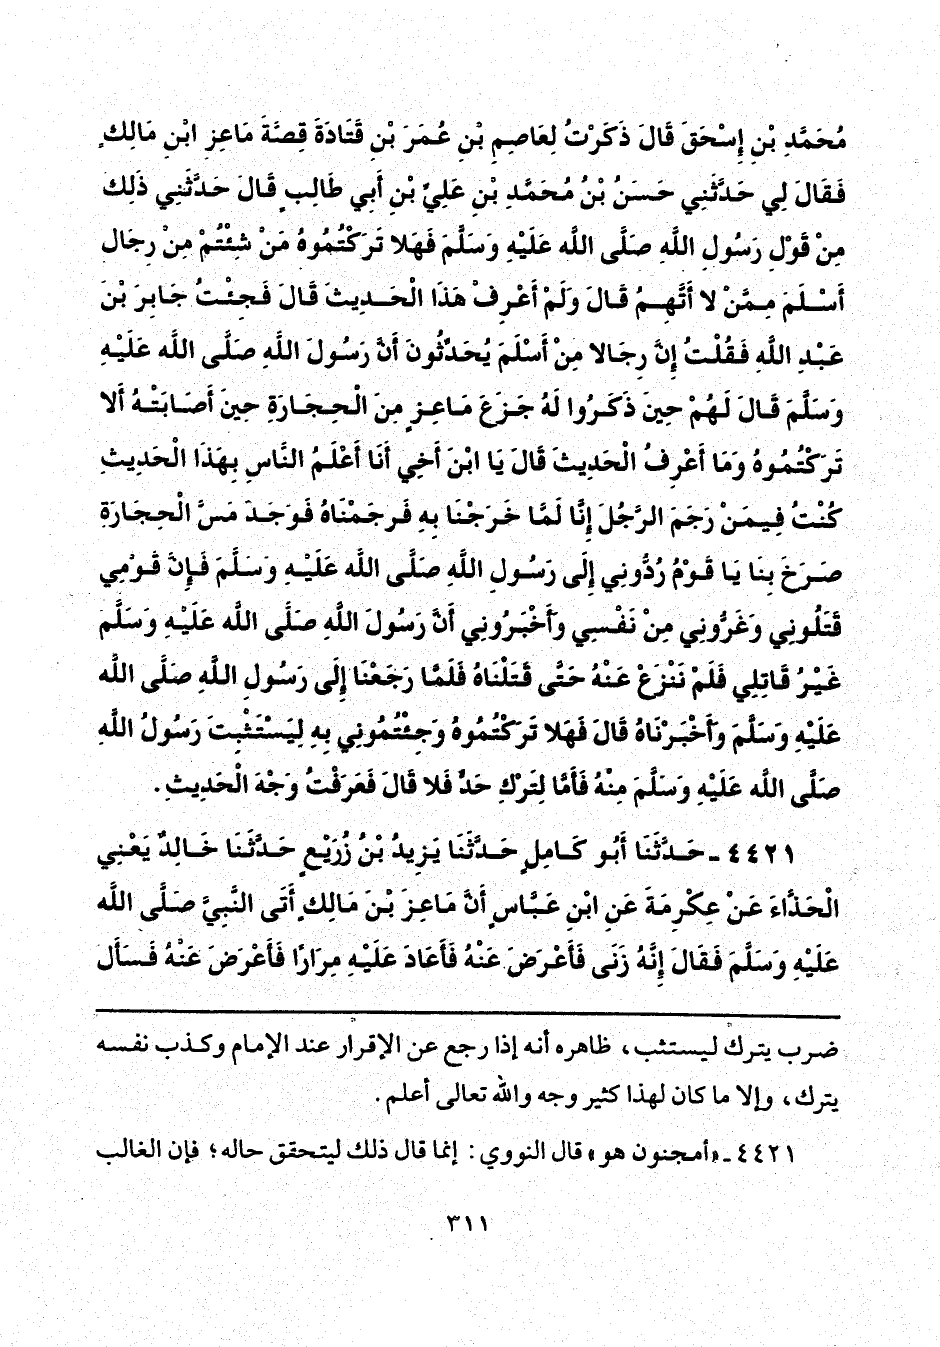 مُحَمَّدِ بْنِ إِسْحَقَ قَالَ ذَكَرْتُ لِعَاصِمِ بْنِ عُمَرَ بْنِ قَتَادَةَ قِصَّةَ مَاعِزِ ابْنِ مَالِكٍ
فَقَالَ لِي حَدَّثَنِي حَسَنُ بْنُ مُحَمَّدِ بْنِ عَلِيِّ بْنِ أَبِي طَالِبٍ قَالَ حَدَّثَنِي ذَلِكَ
مِنْ قَوْلِ رَسُولِ اللَّهِ صَلَّى اللَّه عَلَيْهِ وَسَلَّمَ فَهَلا تَرَكْتُمُوهُ مَنْ شِئْتُمْ مِنْ رِجَالِ
أَسْلَمَ مِمَّنْ لا أَتَّهِمُ قَالَ وَلَمْ أَعْرِفْ هَذَا الْحَدِيثَ قَالَ فَجِئْتُ جَابِرَ بْنَ
عَبْدِ اللَّهِ فَقُلْتُ إِنَّ رِجَالا مِنْ أَسْلَمَ يُحَدِّثُونَ أَنَّ رَسُولَ اللَّهِ صَلَّى اللَّه عَلَيْهِ
وَسَلَّمَ قَالَ لَهُمْ حِينَ ذَكَرُوا لَهُ جَزَعَ مَاعِزٍ مِنَ الْحِجَارَةِ حِينَ أَصَابَتْهُ أَلا
تَرَكْتُمُوهُ وَمَا أَعْرِفُ الْحَدِيثَ قَالَ يَا ابْنَ أَخِي أَنَا أَعْلَمُ النَّاسِ بِهَذَا الْحَدِيثِ
كُنْتُ فِيمَنْ رَجَمَ الرَّجُلَ إِنَّا لَمَّا خَرَجْنَا بِهِ فَرَجَمْنَاهُ فَوَجَدَ مَسَّ الْحِجَارَةِ
صَرَخَ بِنَا يَا قَوْمُ رُدُّونِي إِلَى رَسُولِ اللَّهِ صَلَّى اللَّه عَلَيْهِ وَسَلَّمَ فَإِنَّ قَوْمِي
قَتَلُونِي وَغَرُّونِي مِنْ نَفْسِي وَأَخْبَرُونِي أَنَّ رَسُولَ اللَّهِ صَلَّى اللَّه عَلَيْهِ وَسَلَّمَ
غَيْرُ قَاتِلِي فَلَمْ نَنْزَعْ عَنْهُ حَتَّى قَتَلْنَاهُ فَلَمَّا رَجَعْنَا إِلَى رَسُولِ اللَّهِ صَلَّى اللَّه
عَلَيْهِ وَسَلَّمَ وَأَخْبَرْنَاهُ قَالَ فَهَلا تَرَكْتُمُوهُ وَجِئْتُمُونِي بِهِ لِيَسْتَثْبِتَ رَسُولُ اللَّهِ
صَلَّى اللَّه عَلَيْهِ وَسَلَّمَ مِنْهُ فَأَمَّا لِتَرْكِ حَدٍّ فَلا قَالَ فَعَرَفْتُ وَجْهَ الْحَدِيثِ.
٤٤٢١ ـ حَدَّثَنَا أَبُو كَامِلٍ حَدَّثَنَا يَزِيدُ بْنُ زُرَيْعٍ حَدَّثَنَا خَالِدٌ يَعْنِي
الْحَذَّاءَ عَنْ عِكْرِمَةَ عَنِ ابْنِ عَبَّاسٍ أَنَّ مَاعِزَ بْنَ مَالِكٍ أَتَى النَّبِيَّ صَلَّى اللَّه
عَلَيْهِ وَسَلَّمَ فَقَالَ إِنَّهُ زَنَى فَأَعْرَضَ عَنْهُ فَأَعَادَ عَلَيْهِ مِرَارًا فَأَعْرَضَ عَنْهُ فَسَأَلَ
ضرب يترك ليستثب، ظاهره أنه إذا رجع عن الإقرار عند الإمام وكذب نفسه
يترك، وإلا ما كان لهذا كثير وجه والله تعالى أعلم.
٤٤٢١ ـ «أمجنون هو» قال النووي: إنما قال ذلك ليتحقق حاله؛ فإن الغالب
٣١١